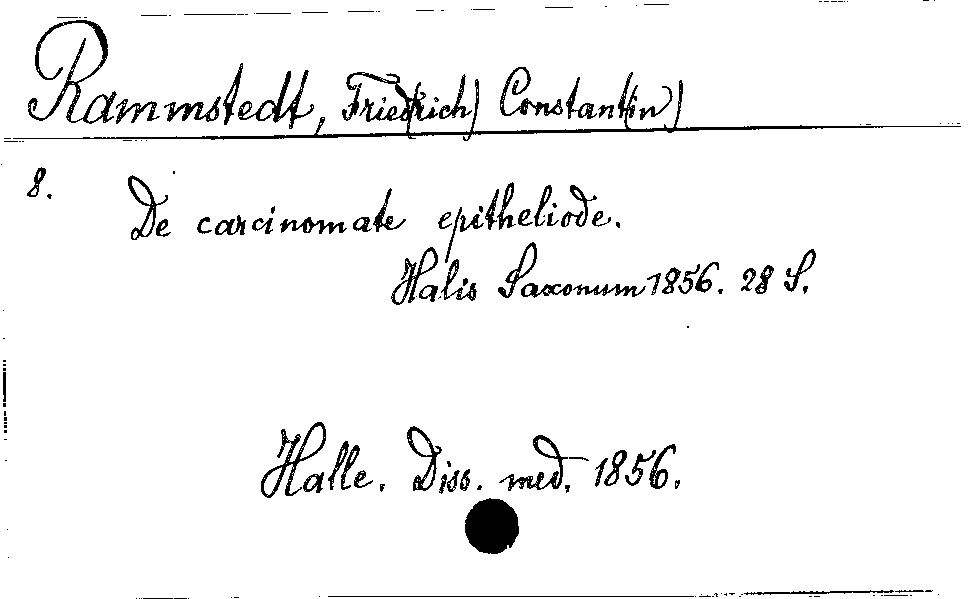 Rammstedt, Fried(rich) Constant(in)
8. De carcinomate epitheliode.
Halis Saxonum 1856. 28 S.
Halle. Diss. med. 1856.